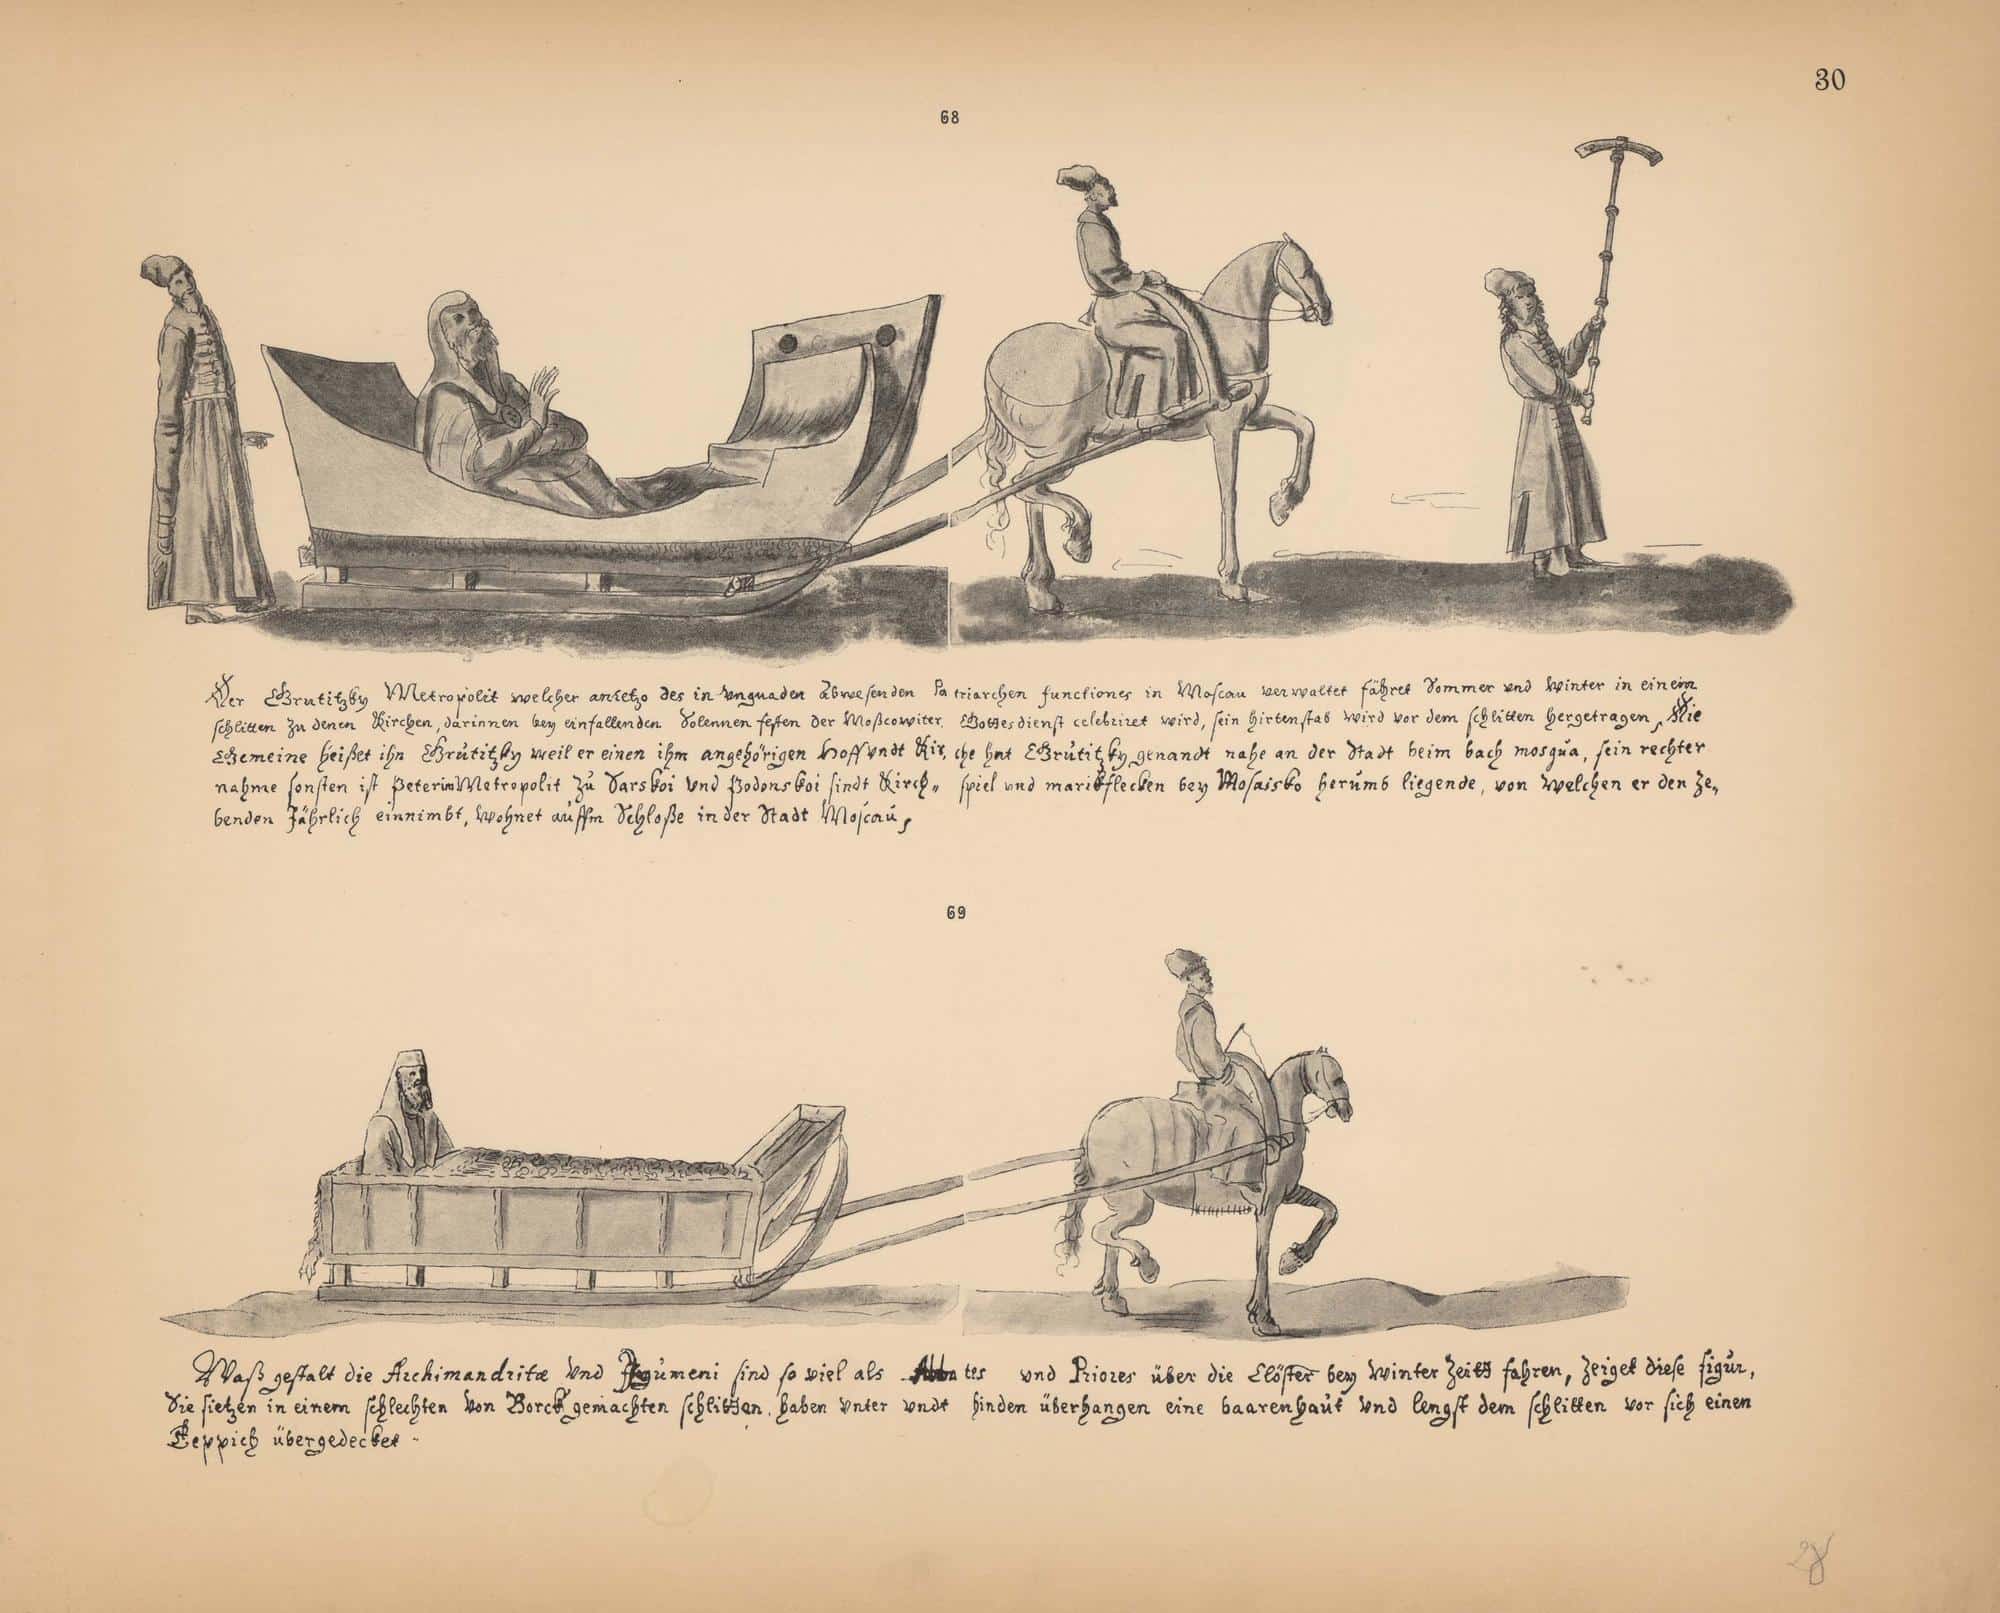 30
68
Der Grutitzky Metropolit welcher anietzo des in ungnaden abwesenden Patriarchen functiones in Moscau verwaltet fähret Sommer und Winter in einem
schlitten zu denen Kirchen, darinnen bey einfallenden Solennen festen der Moßcowiter Gottesdienst celebriret wird, sein hirtenstab wird vor dem schlitten hergetragen, Die
Gemeine heißet ihn Grutitzky weil er einen ihm angehörigen Hoff undt Kirche hat Grutitzky genandt nahe an der Stadt beim bach mosqua, sein rechter
nahme sonsten ist Peterim Metropolit zu Sarskoi und Podonskoi sindt Kirch„ spiel und marckflecken bey Mosaisko herumb liegende, von welchen er den Ze„
henden Jährlich einnimbt, wohnet auffm Schloße in der Stadt Moscau,
69
Waß gestalt die Archimandritæ und Igumeni sind so viel als Abbates und Priores über die Clöster bey Winter Zeits fahren, zeiget diese figur,
Sie sietzen in einem schlechten von Borck gemachten schlitten, haben unter undt hinden überhangen eine baarenhaut und lengst dem schlitten vor sich einen
Teppich übergedecket